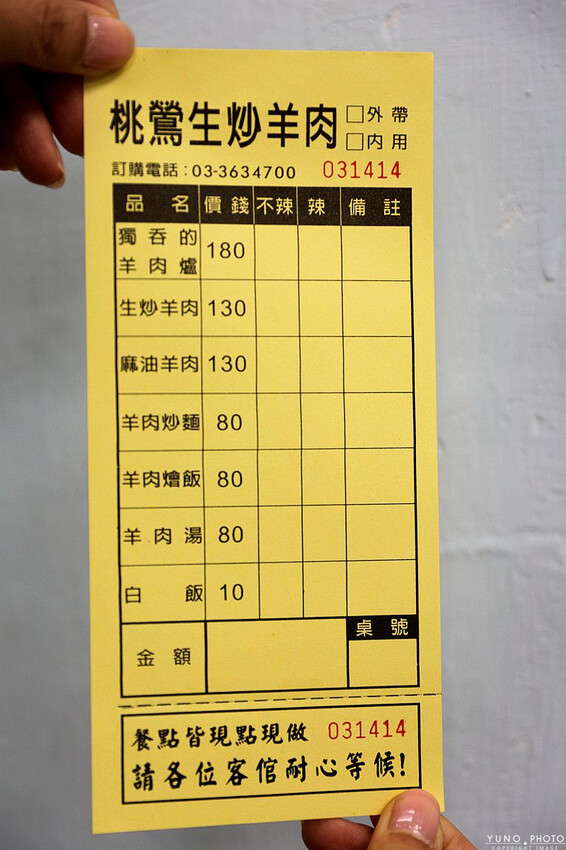 桃鶯生炒羊肉 □外帶
□內用
訂購電話:03-3634700 031414
品名 價錢 不辣 辣 備註
獨吞的
羊肉爐 180
生炒羊肉 130
麻油羊肉 130
羊肉炒麵 80
羊肉燴飯 80
羊肉湯 80
白飯 10
桌號
金額
餐點皆現點現做 031414
請各位客倌耐心等候!
YUNO PHOTO
COPYRIGHT IMAGE